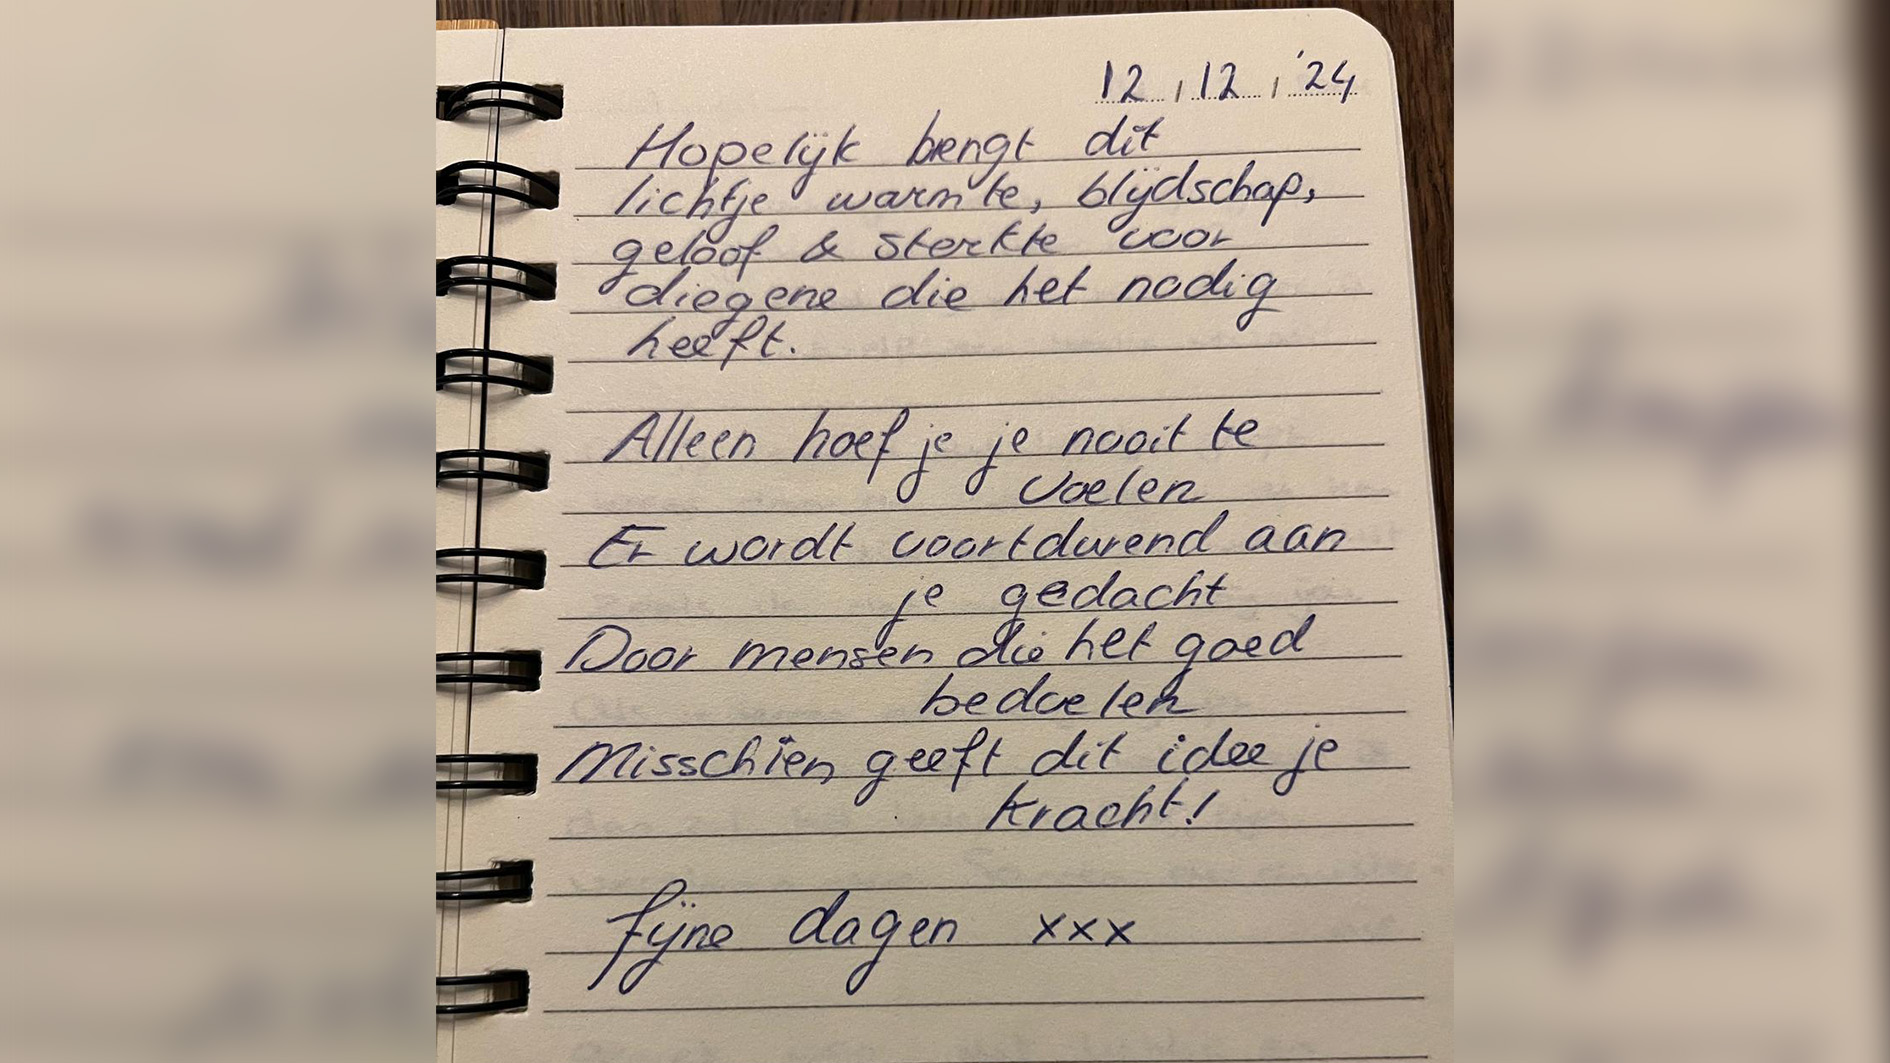 12, 12, '24
Hopelijk brengt dit
lichtje warmte, blijdschap,
geloof & sterkte voor
diegene die het nodig
heeft.
Alleen hoef je je nooit te
voelen
Er wordt voortdurend aan
je gedacht
Door mensen die het goed
bedoelen
Misschien geeft dit idee je
kracht!
fijne dagen xxx